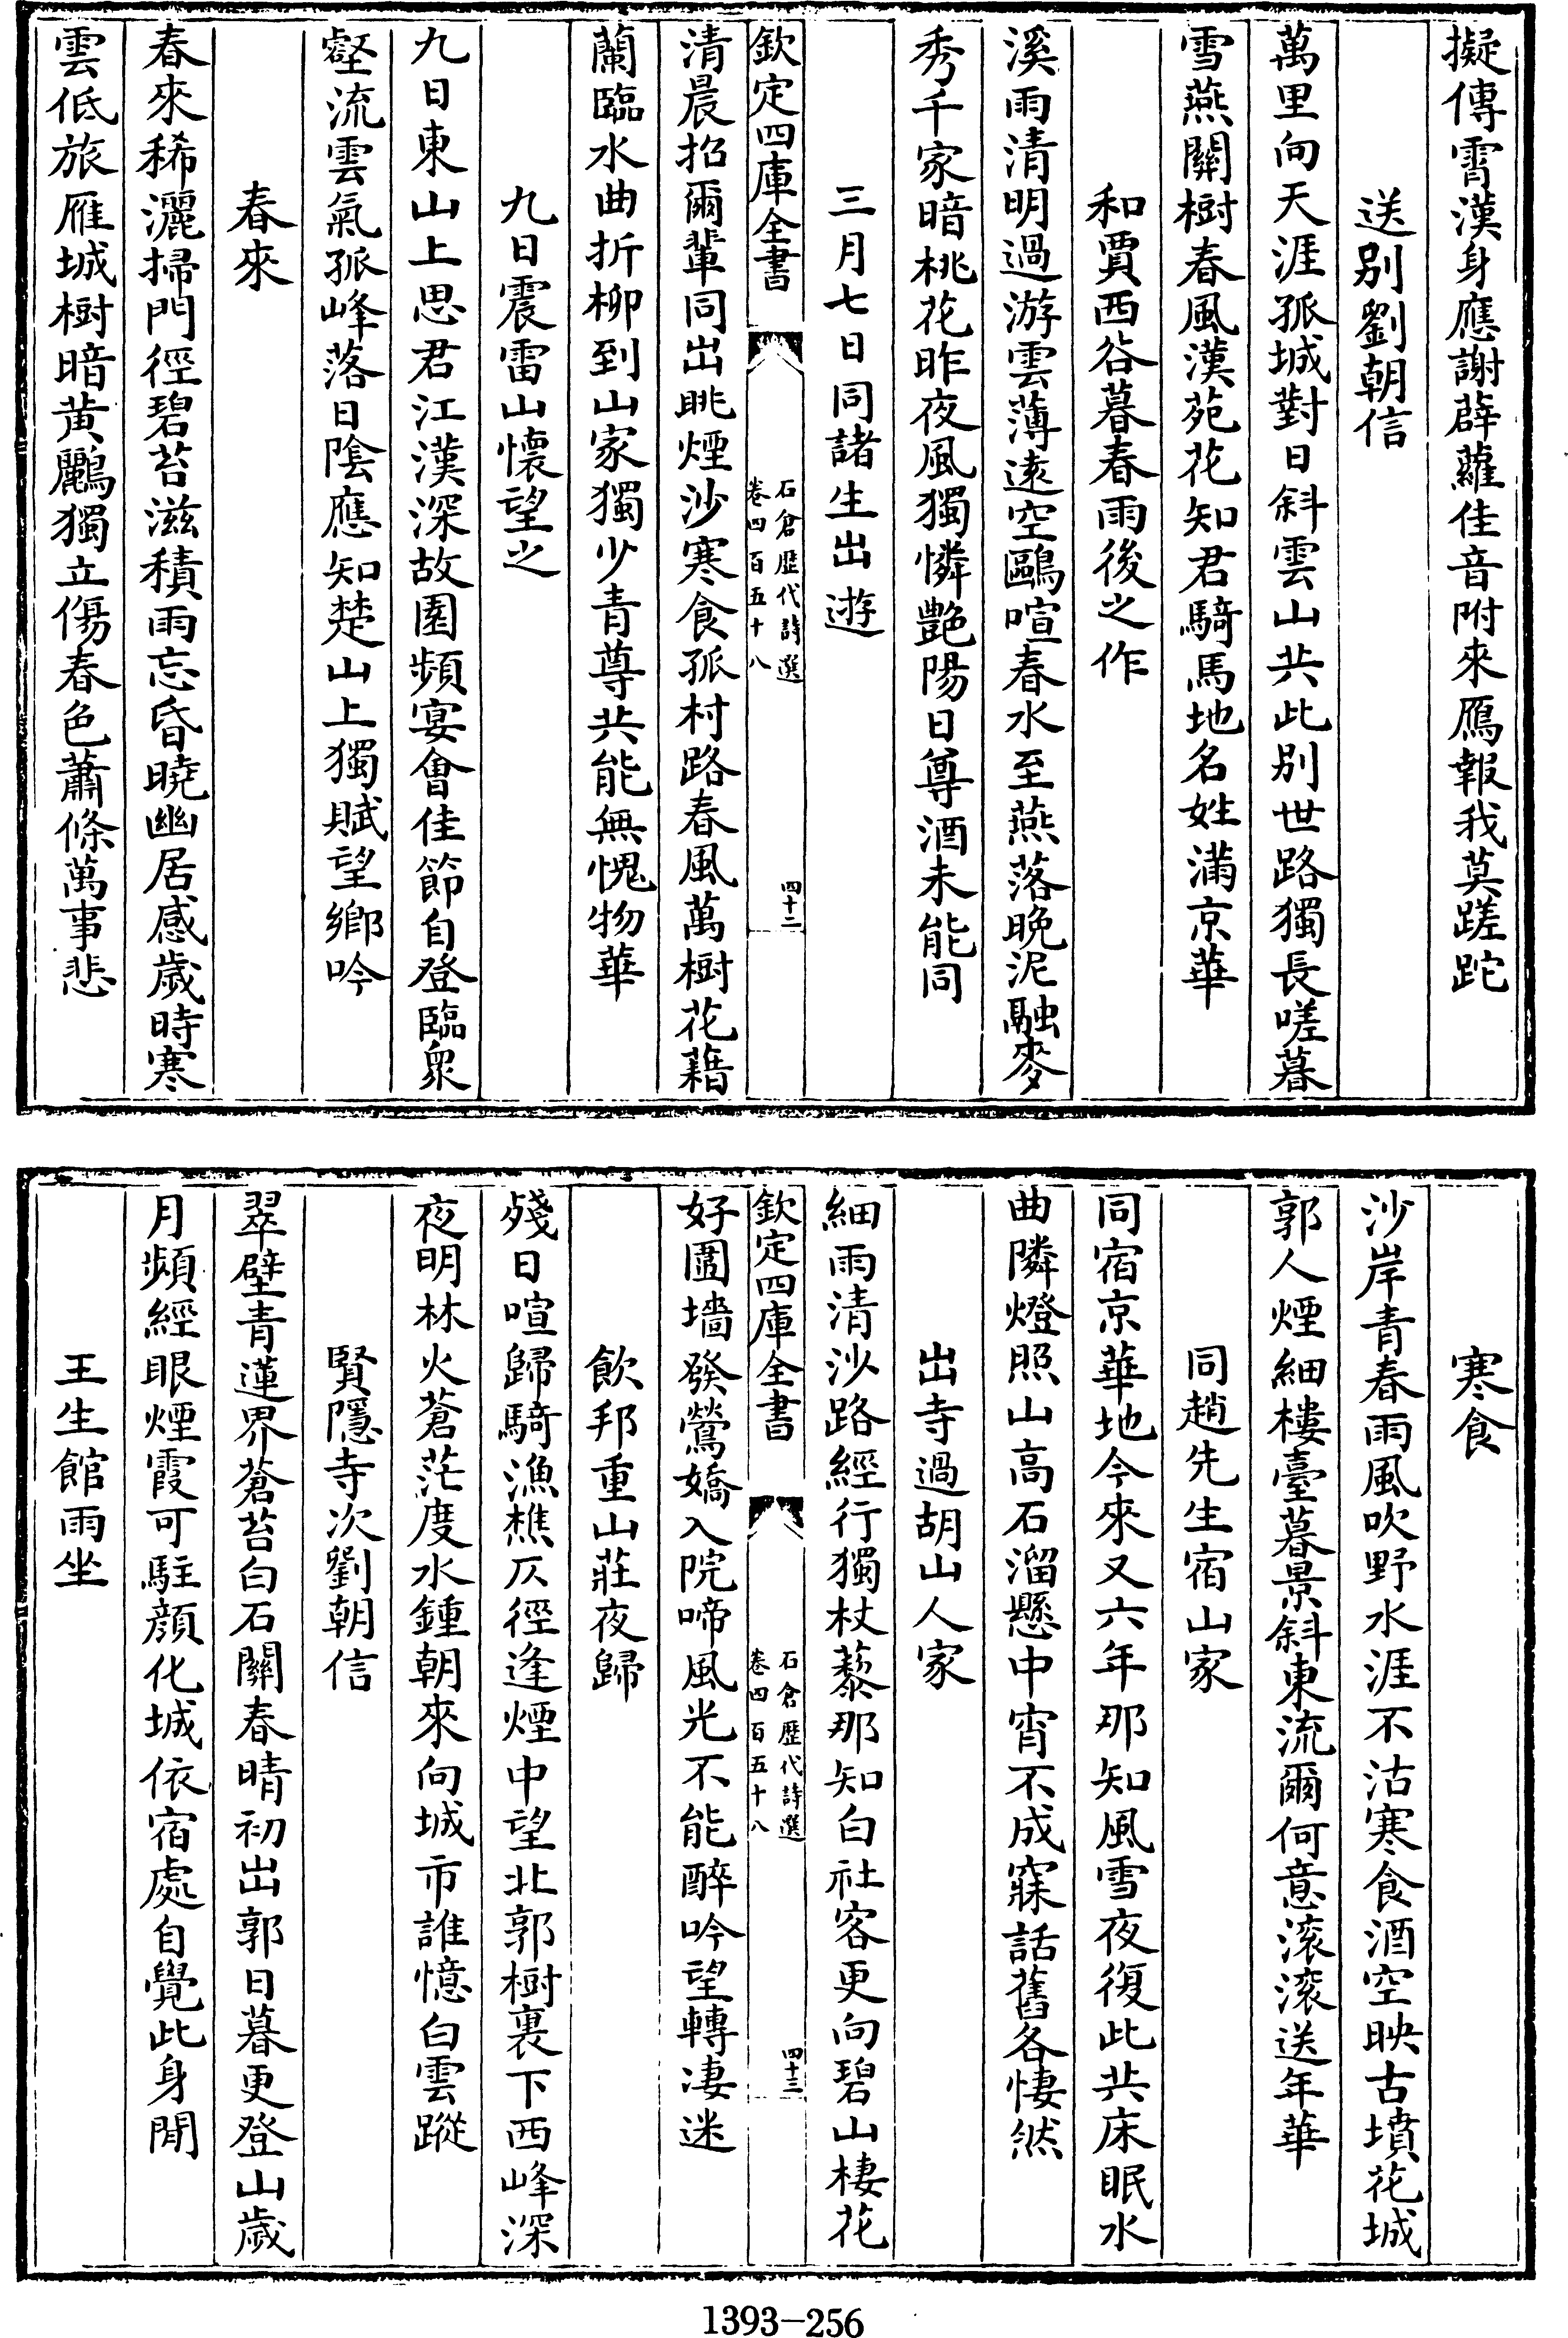 擬傳霄漢身應謝薜蘿佳音附來鴈報我莫蹉跎
送別劉朝信
萬里向天涯孤城對日斜雲山共此別世路獨長嗟暮
雪燕關樹春風漢苑花知君騎馬地名姓滿京華
和賈西谷暮春雨後之作
溪雨清明過游雲薄遠空鷗喧春水至燕落晚泥融麥
秀千家暗桃花昨夜風獨憐艷陽日尊酒未能同
三月七日同諸生出遊
欽定四庫全書
石倉歷代詩選
卷四百五十八
四十二
清晨招爾輩同出眺煙沙寒食孤村路春風萬樹花藉
蘭臨水曲折柳到山家獨少青尊共能無愧物華
九日震雷山懷望之
九日東山上思君江漢深故園頻宴會佳節自登臨衆
壑流雲氣孤峰落日陰應知楚山上獨賦望鄉吟
春來
春來稀灑掃門徑碧苔滋積雨忘昏曉幽居感歲時寒
雲低旅雁城樹暗黃鸝獨立傷春色蕭條萬事悲
寒食
沙岸青春雨風吹野水涯不沽寒食酒空映古墳花城
郭人煙細樓臺暮景斜東流爾何意滚滚送年華
同趙先生宿山家
同宿京華地今來又六年那知風雪夜復此共床眠水
曲隣燈照山高石溜懸中宵不成寐話舊各悽然
出寺過胡山人家
細雨清沙路經行獨杖藜那知白社客更向碧山棲花
欽定四庫全書
石倉歷代詩選
卷四百五十八
四十三
好圍墻發鶯嬌入院啼風光不能醉吟望轉凄迷
飲邦重山莊夜歸
殘日喧歸騎漁樵仄徑逢煙中望北郭樹裏下西峰深
夜明林火蒼茫度水鍾朝來向城市誰憶白雲蹤
賢隱寺次劉朝信
翠壁青蓮界蒼苔白石關春晴初出郭日暮更登山歲
月頻經眼煙霞可駐顏化城依宿處自覺此身閒
王生館雨坐
1393-256